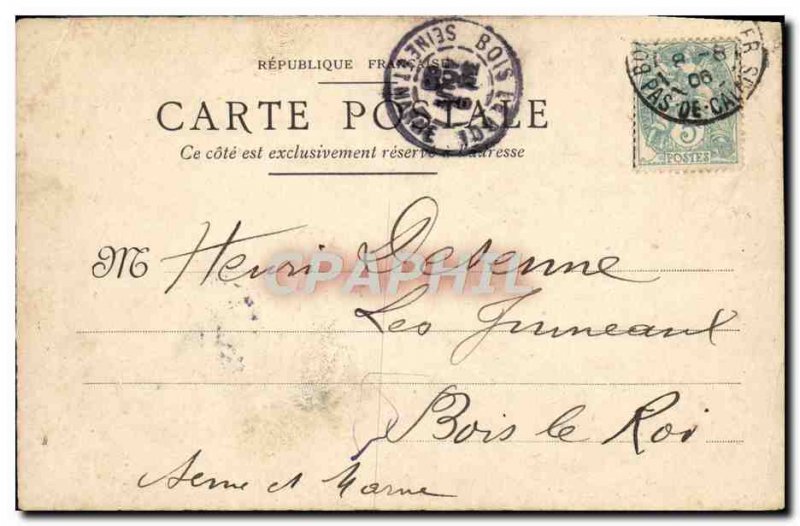 RÉPUBLIQUE FRANÇAISE
CARTE POSTALE
Ce côté est exclusivement réservé à l'adresse
BOIS LE ROI
SEINE ET MARNE
8 - 8
06
PAS-DE-CALAIS
5
POSTES
M Henri Desenne
Les Jumeaux
Bois le Roi
Seine et Marne
CPAPHIL